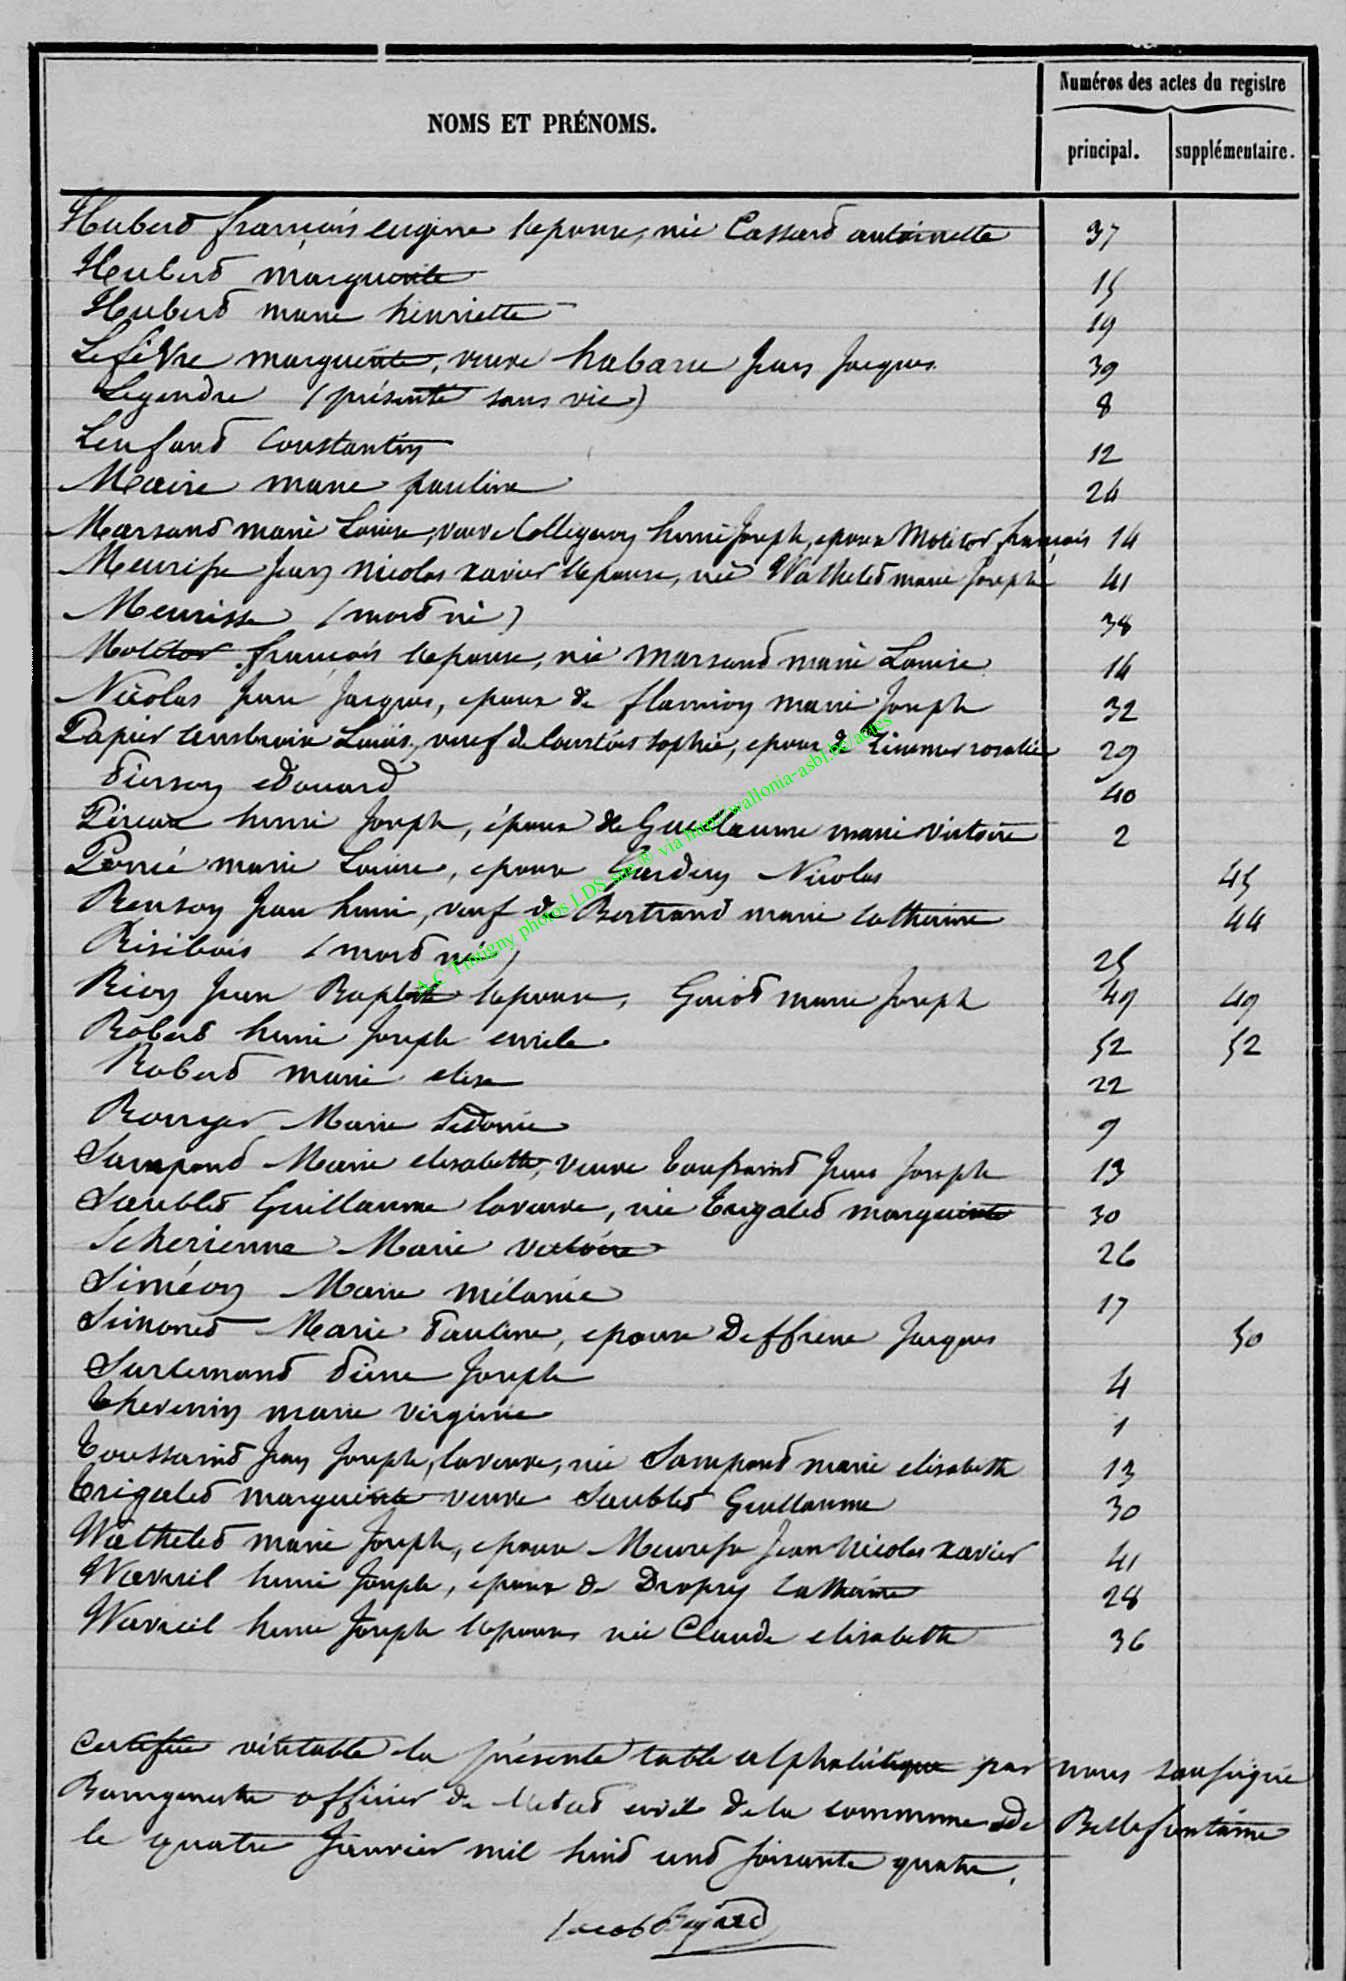 NOMS ET PRÉNOMS.
Numéros des actes du registre
principal. supplémentaire.
Hubert françois eugène l'epouse, née Cassard antoinette 37
Hubert marguerite 15
Hubert marie henriette 19
Lefèvre marguerite, veuve habarue Jean Jacques. 39
Legendre (présenté sans vie) 8
Lenfant Constantin 12
Maire marie pauline 24
Marsand marie Louise, veuve Collignon henri Joseph, epouse Molitor françois 14
Meurisse Jean nicolas xavier l'epouse, née Wathelet marie Joseph 41
Meurisse (mort né) 38
Molitor françois l'epouse, née marsand marie Louise 14
Nicolas Jean Jacques, epoux de flamion marie Joseph 32
Papier ambroise Louis, veuf de Courtois sophie, epoux de rosalie 29
Pierson edouard 40
Pireaux henri Joseph, époux de Guillaume marie victoire 2
Poncé marie Louise, epouse Gardin Nicolas 45
Renson Jean henri, veuf de Bertrand marie catherine 44
Risibois (mort né) 25
Rion Jean Baptiste l'epouse, Guiot marie Joseph 49 49
Robert henri Joseph emile 52 52
Robert marie elise 22
Marie Sidonie 9
Sampont Marie elisabeth, veuve Toussaint Jean Joseph 13
Saublet Guillaume la veuve, née Trigalet marguerite 30
Scherienne Marie victoire 26
Siméon Marie mélanie 17
Simonet Marie Pauline, epouse Deffrene Jacques 50
Surlemont Pierre Joseph 4
Thevenin marie virginie 1
Toussaint Jean Joseph, la veuve, née Sampont marie elisabeth 13
Trigalet marguerite veuve Saublet Guillaume 30
Wathelet marie Joseph, epouse Meurisse Jean Nicolas xavier 41
Wavreil henri Joseph, epoux de Dropsy Catherine 28
Wavreil henri Joseph l'epouse née Claude elisabeth 36
Certifiée véritable la présente table alphabétique par nous soussigné
Bourgmestre officier de l'etat civil de la commune de Bellefontaine
le quatre Janvier mil huit cent soixante quatre.
Jacob
A.C Tintigny photos LDS sae ® via http://wallonia-asbl.be/actes